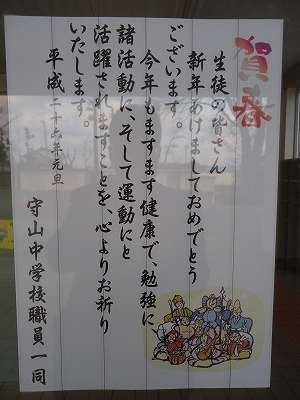 賀春
生徒の皆さん
新年あけましておめでとう
ございます。
今年もますます健康で、勉強に
諸活動に、そして運動にと
活躍されますことを、心よりお祈り
いたします。
平成二十六年元旦
守山中学校職員一同